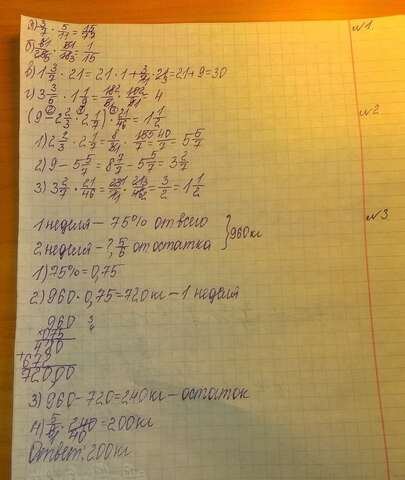 а) 3/7 · 5/11 = 15/77 №1
в) 1 3/7 · 21 = 21 · 1 + 3/7 · 21 = 21 + 9 = 30
г) 3 3/5 · 1 1/9 = = 4
(9 - 2 2/3 · 2 1/7) · 21/46 = 1 1/2 №2
1) 2 2/3 · 2 1/7 = = 40/7 = 5 5/7
2) 9 - 5 5/7 = 8 7/7 - 5 5/7 = 3 2/7
3) 3 2/7 · 21/46 = = 3/2 = 1 1/2
1 неделя - 75% от всего №3
2 неделя - ?, 5/6 от остатка } 960кг
1) 75% = 0,75
2) 960 · 0,75 = 720кг - 1 неделя
960
075
480
+672
720,00
3) 960 - 720 = 240кг - остаток
= 200кг
Ответ: 200кг